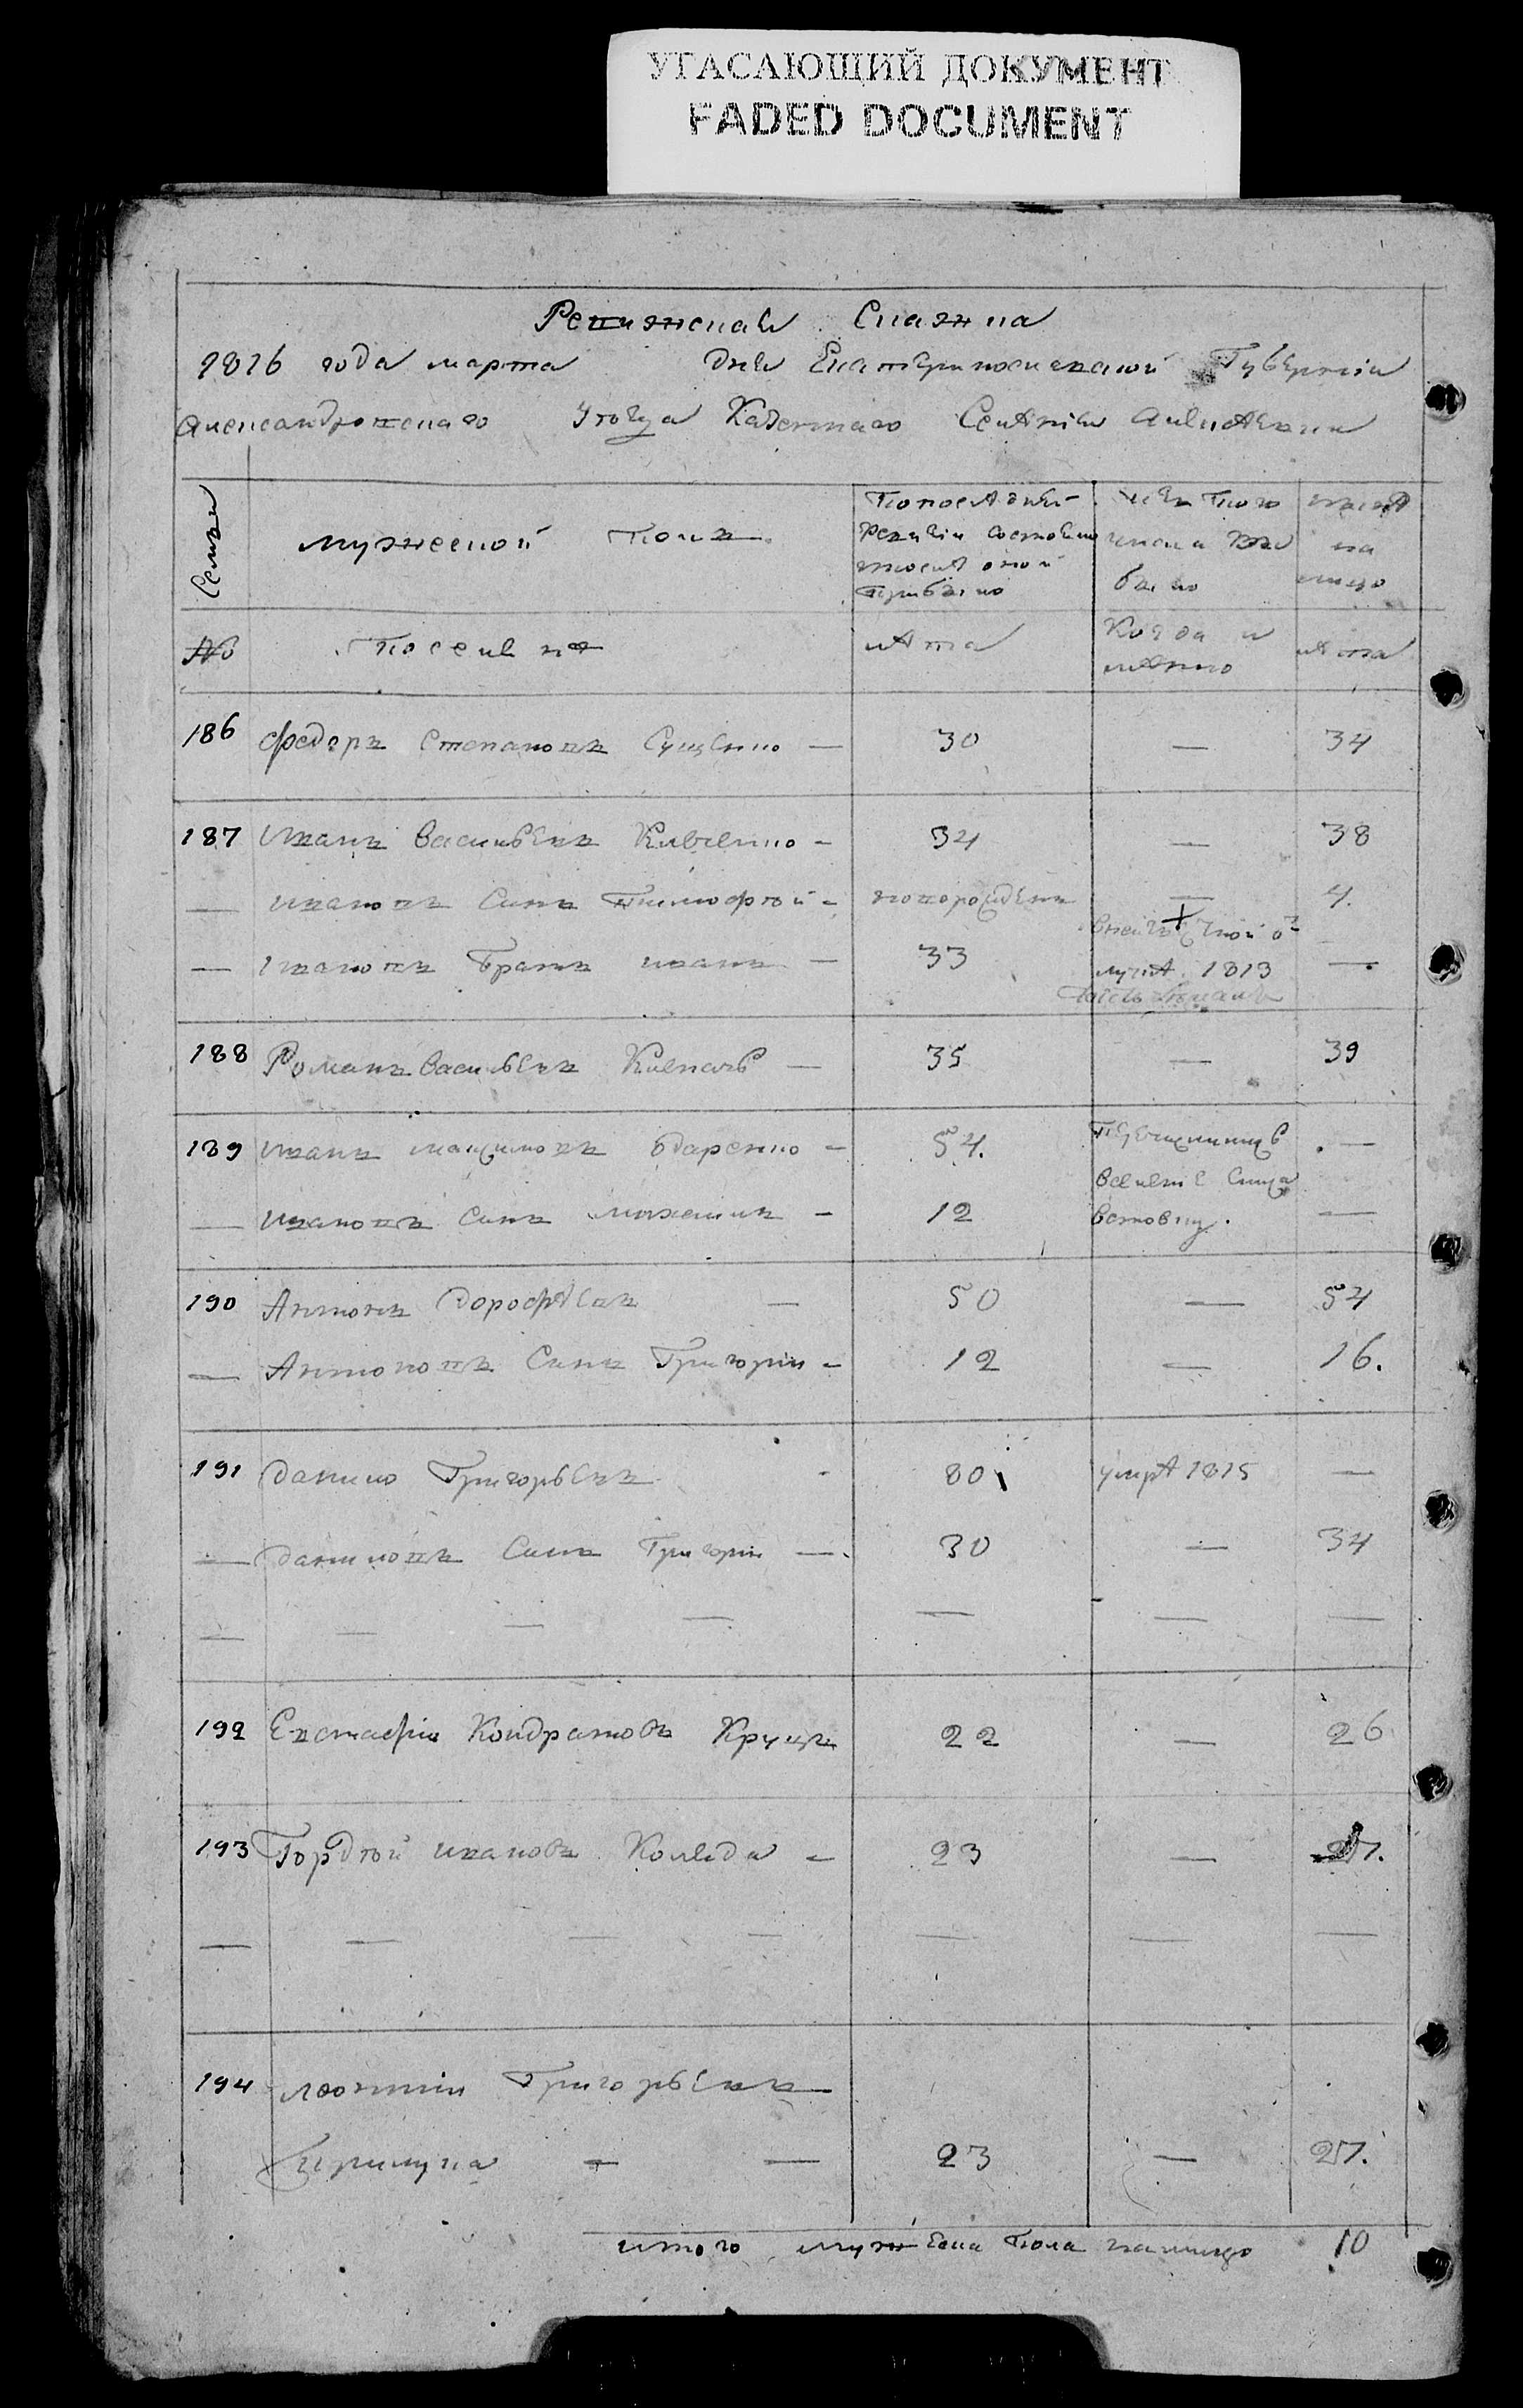 УГАСАЮЩИЙ ДОКУМЕНТ
FADED DOCUMENT
Ревижская Скаска
1816 года марта дня Екатеринославской Губернии
Александровскаго уезда Казеннаго Селения
Семьи
мужеской полъ
По последней ревизии состояло и после оной прибыло
изъ того числа выбыло
ныне на лицо
№
поселяне
лета
Когда и
лета
186 Федоръ Степановъ Сущенко — 30 — 34
187 Иванъ Васильевъ — 34 — 38
— Ивановъ Синъ Тимофей — новорожденъ — 4.
— Ивановъ Братъ иванъ — 33 1813 —
188 Романъ Васильевъ — 35 — 39
189 Иванъ Максимовъ Бдаренко — 54. —
— Ивановъ Синъ Михаила — 12 —
190 Антонъ Дорофеевъ — 50 — 54
— Антоновъ Синъ Григорий — 12 — 16.
191 Данило Григорьевъ 80 умре 1815 —
— Даниловъ Синъ Григорий — 30 — 34
— — — — — — —
192 Евстафий Кондратовъ Круцъ 22 — 26
193 Гордей Ивановъ Коляда — 23 — 27.
— — — — — — —
194 Леонтий Григорьевъ
Прилупа — — 23 — 27.
итого мужеска пола налицо 10